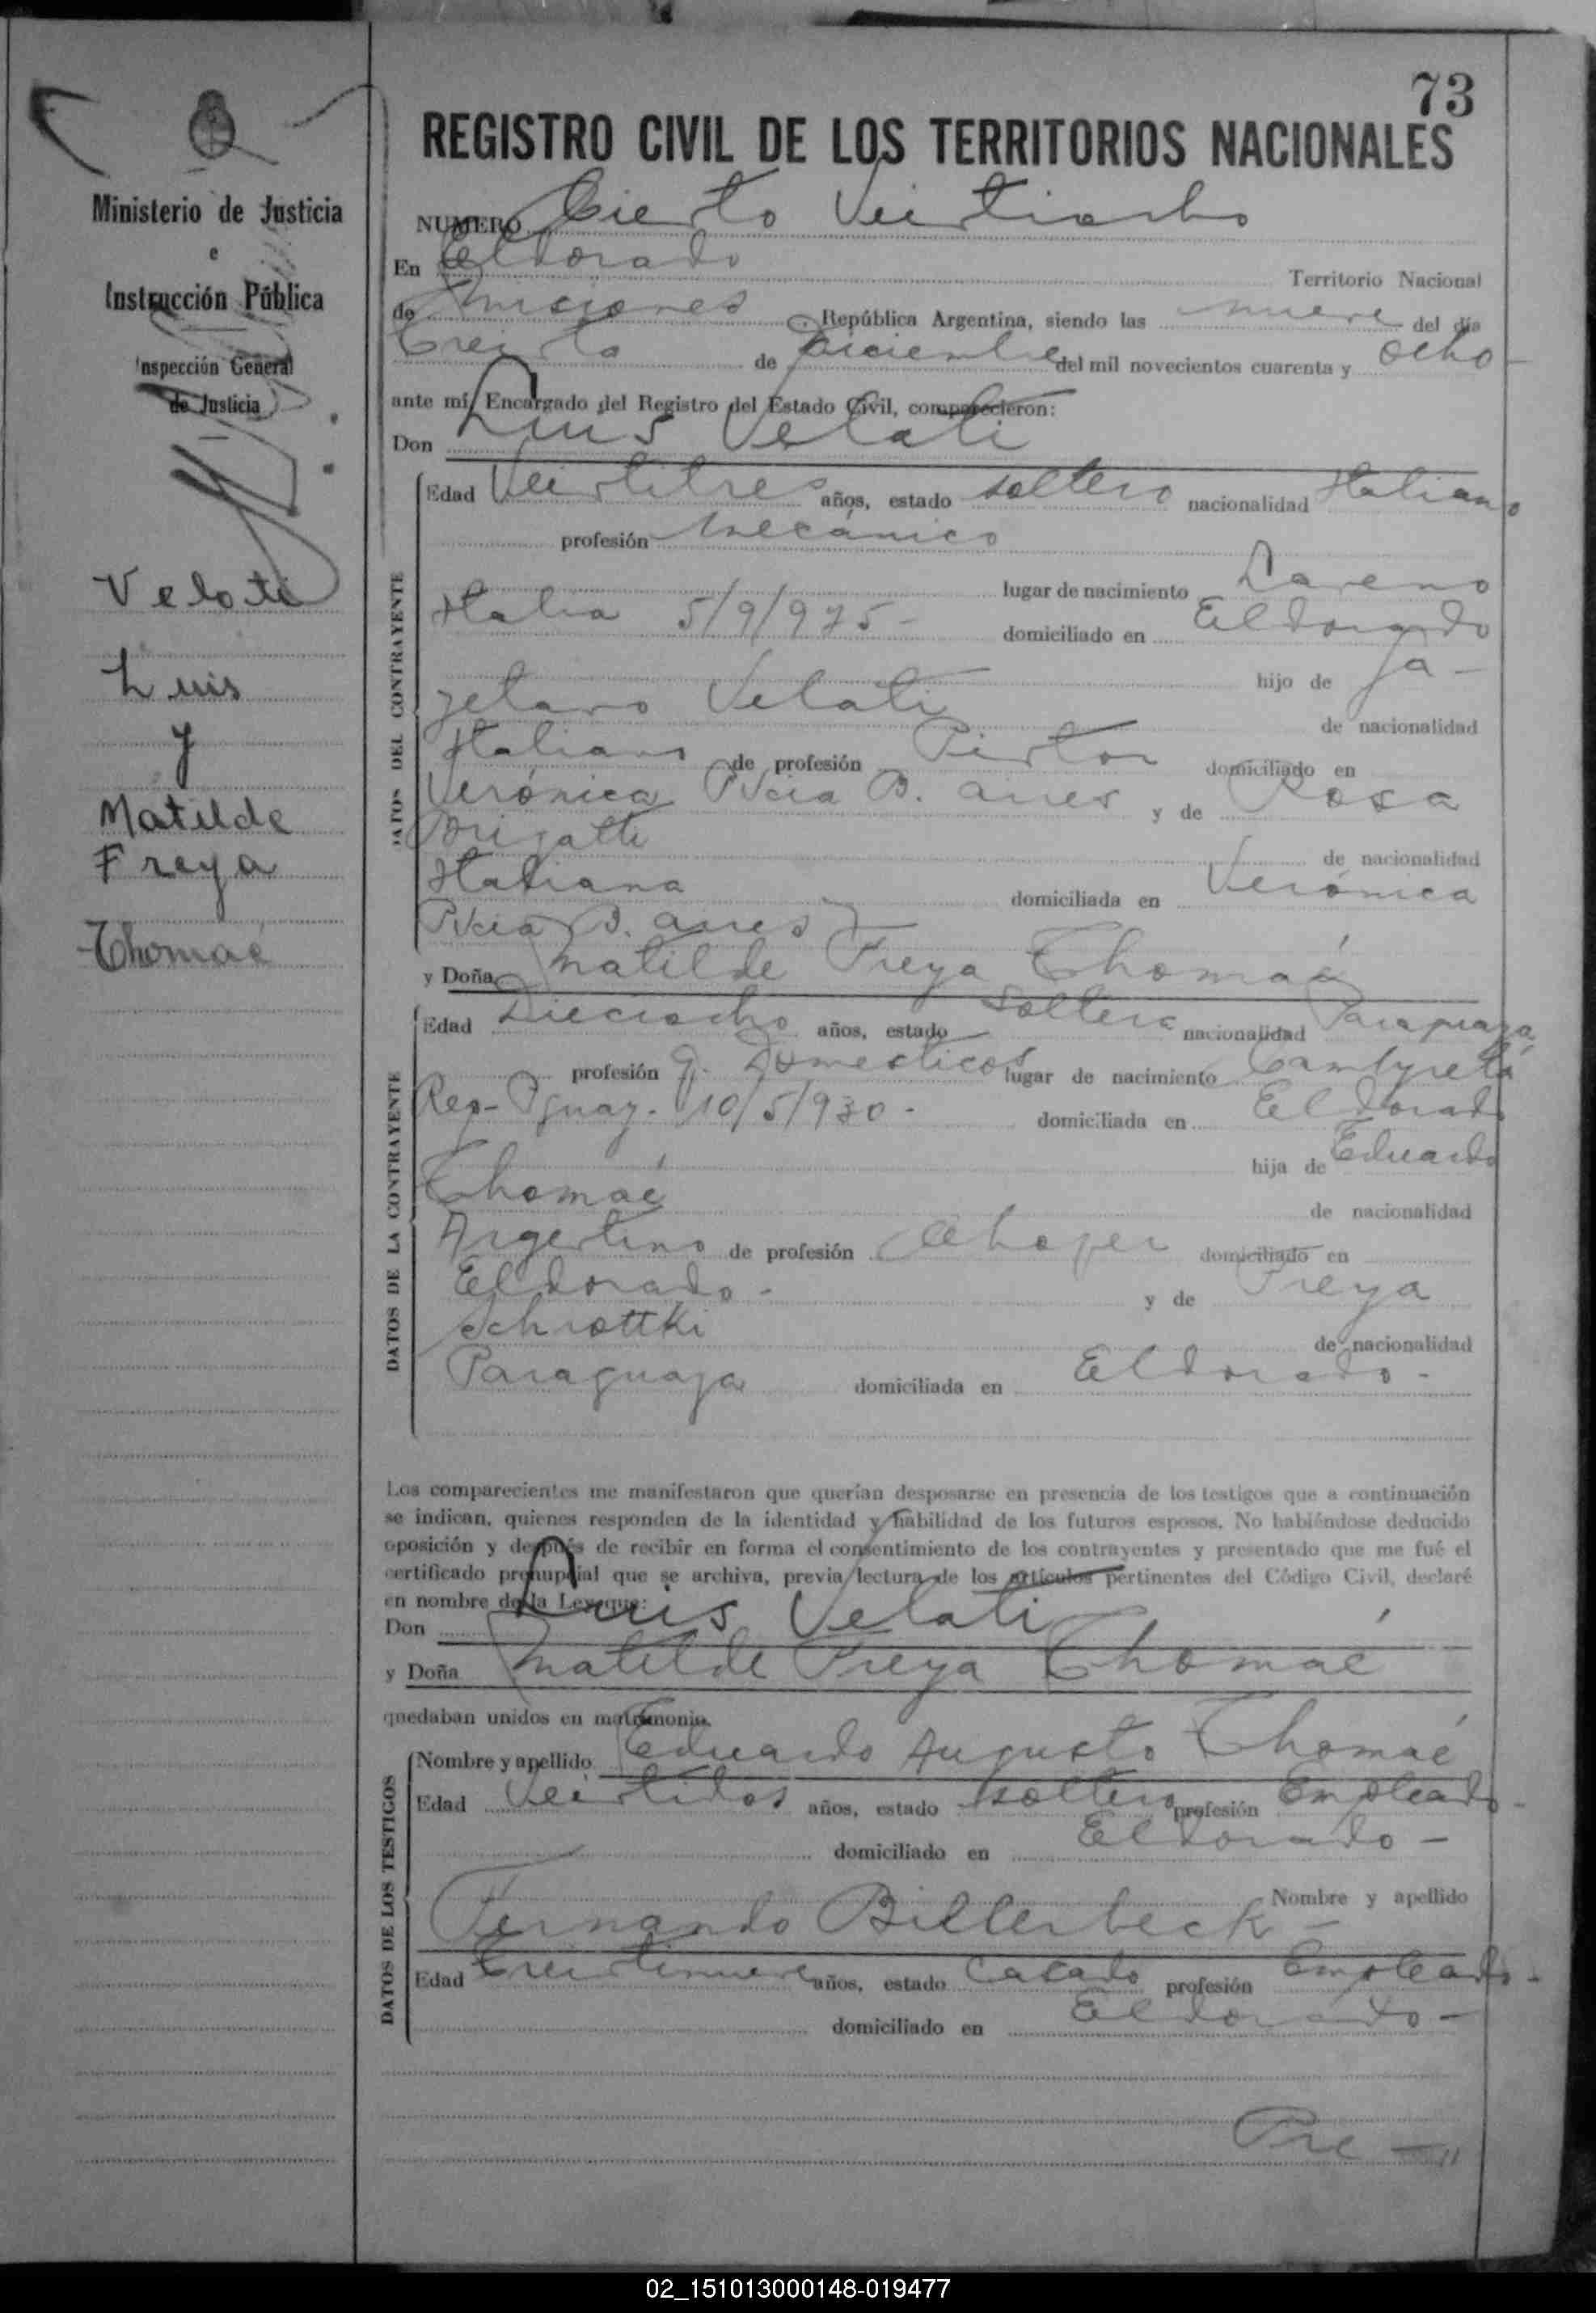 73
REGISTRO CIVIL DE LOS TERRITORIOS NACIONALES
Ministerio de Justicia
e
Instrucción Pública
Inspección General
de Justicia
Velati
Luis
y
Matilde
Freya
Thomaé
NUMERO Ciento Veintiocho
En Eldorado Territorio Nacional
de Misiones República Argentina, siendo las nueve del día
treinta de Diciembre del mil novecientos cuarenta y ocho
ante mí, Encargado del Registro del Estado Civil, comparecieron:
Don Luis Velati
DATOS DEL CONTRAYENTE
Edad Veintitres años, estado soltero nacionalidad Italiano
profesión Mecánico
lugar de nacimiento Lareno
Italia 5/9/925- domiciliado en Eldorado
hijo de Ga-
yetano Velati de nacionalidad
Italiano de profesión Pintor domiciliado en
Verónica Pvcia B. aires y de Rosa
Brigatti de nacionalidad
Italiana domiciliada en Verónica
Pvcia B. aires
y Doña Matilde Freya Thomaé
DATOS DE LA CONTRAYENTE
Edad Dieciocho años, estado soltera nacionalidad Paraguaya
profesión q. Domesticos lugar de nacimiento Cambyretá
Rep- Pguay. 10/5/930- domiciliada en Eldorado
hija de Eduardo
Thomaé de nacionalidad
Argentino de profesión Chofer domiciliado en
Eldorado- y de Freya
Schrottki de nacionalidad
Paraguaya domiciliada en Eldorado-
Los comparecientes me manifestaron que querían desposarse en presencia de los testigos que a continuación
se indican, quienes responden de la identidad y habilidad de los futuros esposos. No habiéndose deducido
oposición y después de recibir en forma el consentimiento de los contrayentes y presentado que me fué el
certificado prenupcial que se archiva, previa lectura de los artículos pertinentes del Código Civil, declaré
en nombre de la Ley que:
Don Luis Velati
y Doña Matilde Freya Thomaé
quedaban unidos en matrimonio.
DATOS DE LOS TESTIGOS
Nombre y apellido Eduardo Augusto Thomaé
Edad Veintidos años, estado soltero profesión Empleado-
domiciliado en Eldorado-
Nombre y apellido
Fernando Billerbeck-
Edad Treintinueve años, estado Casado profesión Empleado-
domiciliado en Eldorado-
Pre-//
02_151013000148-019477